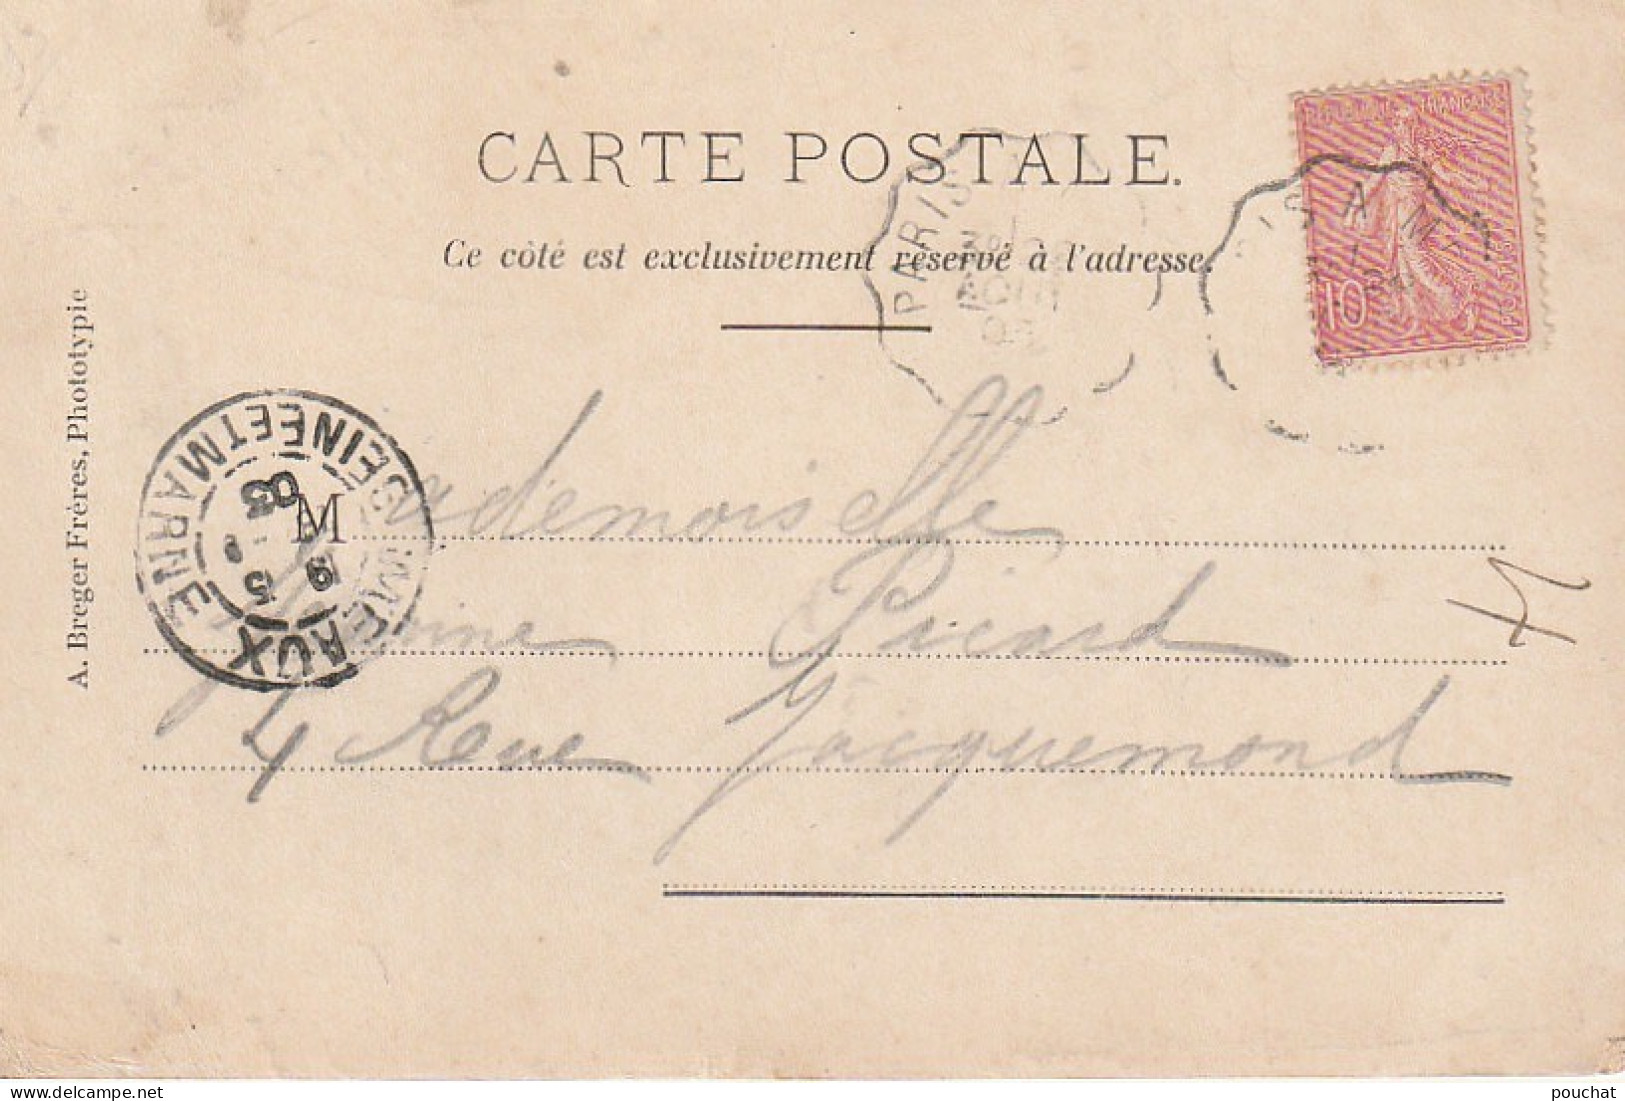 CARTE POSTALE.
Ce côté est exclusivement réservé à l'adresse.
RÉPUBLIQUE FRANÇAISE
10
POSTES
PARIS
AOUT
A. Breger Frères, Phototypie
MEAUX
SEINE ET MARNE
5 - 9
03
Mademoiselle
Picard
4 Rue Jacquemond
pouchat
www.delcampe.net